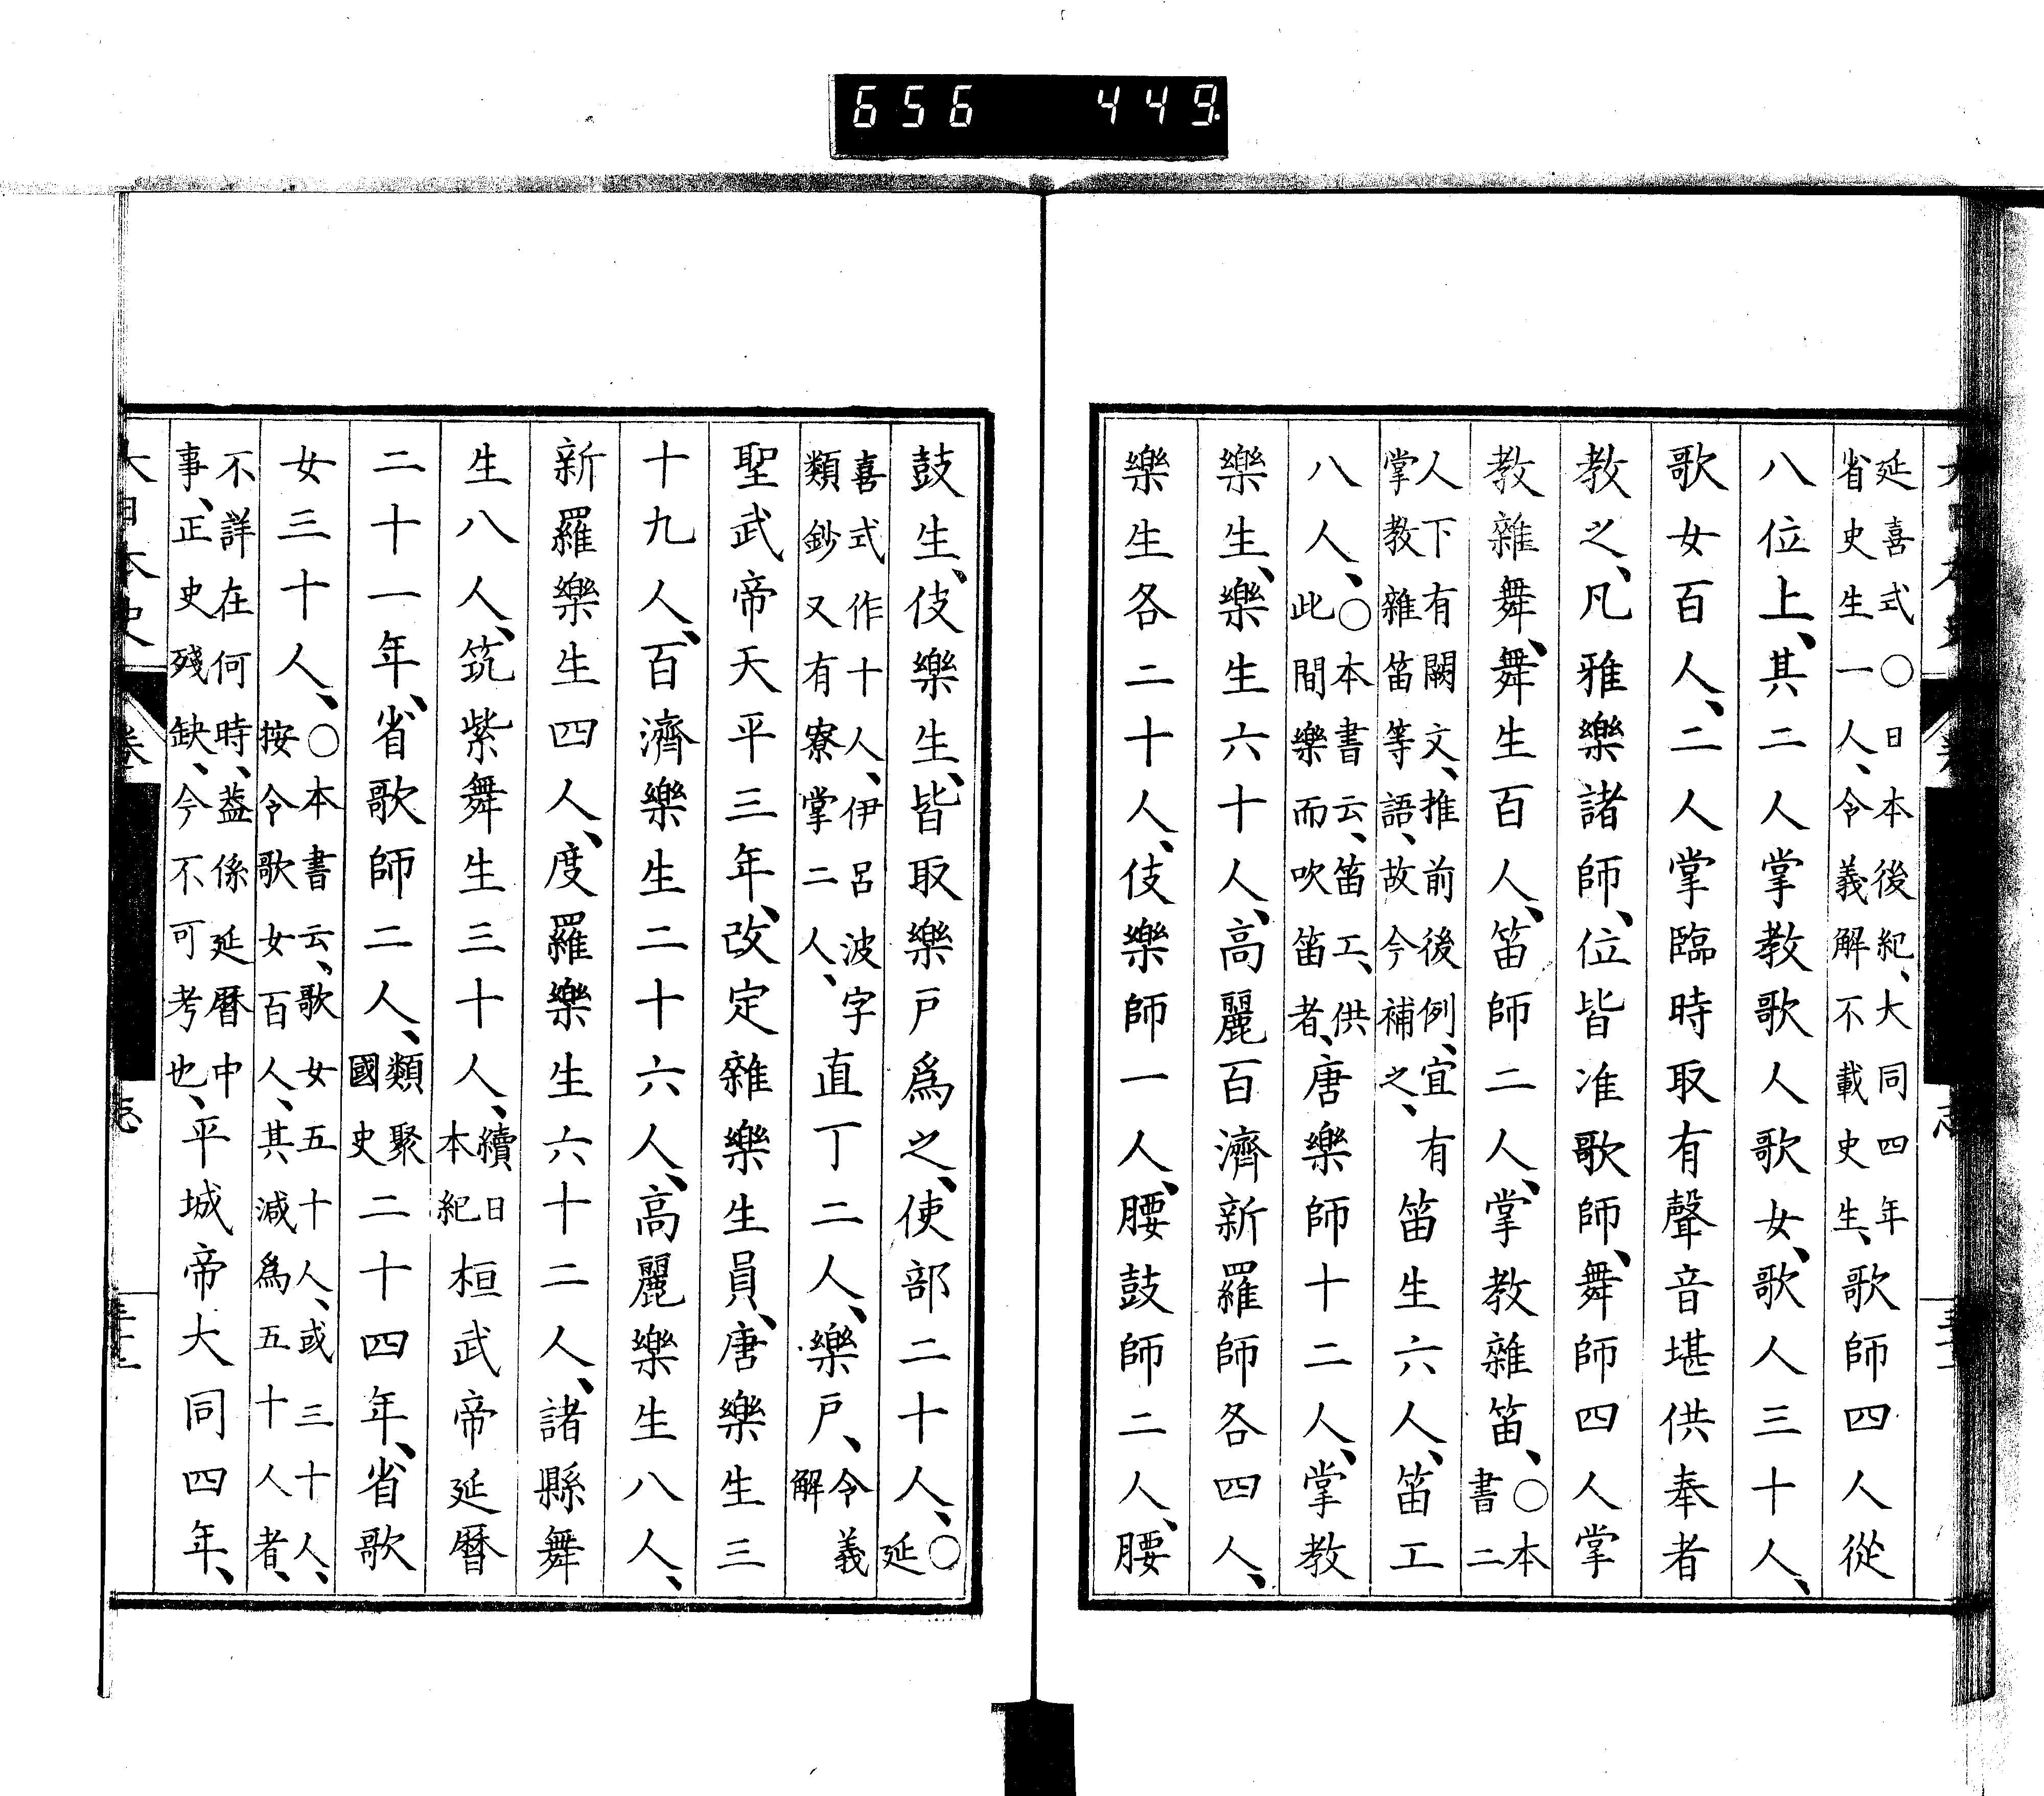 656 449
延喜式○日本後紀、大同四年
省史生一人、令義解不載史生、歌師四人從
八位上、其二人掌教歌人歌女、歌人三十人、
歌女百人、二人掌臨時取有聲音堪供奉者
教之、凡雅樂諸師、位皆准歌師、舞師四人掌
教雜舞、舞生百人、笛師二人、掌教雜笛、○本
書二
人下有闕文、推前後例、宜有
掌教雜笛等語、故今補之、笛生六人、笛工
八人、○本書云、笛工、供
此間樂而吹笛者、唐樂師十二人、掌教
樂生、樂生六十人、高麗百濟新羅師各四人、
樂生各二十人、伎樂師一人、腰鼓師二人、腰
鼓生、伎樂生、皆取樂戸爲之、使部二十人、○
延
喜式作十人、伊呂波字
類鈔又有寮掌二人、直丁二人、樂戸、令義
解
聖武帝天平三年、改定雜樂生員、唐樂生三
十九人、百濟樂生二十六人、高麗樂生八人、
新羅樂生四人、度羅樂生六十二人、諸縣舞
生八人、筑紫舞生三十人、續日
本紀桓武帝延曆
二十一年、省歌師二人、類聚
國史二十四年、省歌
女三十人、○本書云、歌女五十人、或三十人、
按令歌女百人、其減爲五十人者、
不詳在何時、蓋係延曆中
事、正史殘缺、今不可考也、平城帝大同四年、
大日本史
志